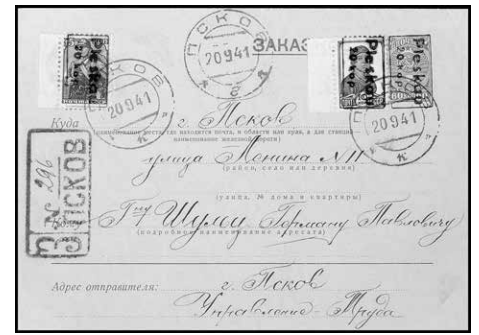 ПСКОВ
20 9 41
ЗАКАЗ
Pleskau
20 kop.
Pleskau
20 kop.
Pleskau
20 kop.
60
ПСКОВ
20 9 41
"к"
ПСКОВ
20 9 41
"к"
Куда г. Псков
(наименование места, где находится почта, и области или края, а для станций
наименование железной дороги)
улица Ленина N 11
(район, село или деревня)
(улица, № дома и квартиры)
З ПСКОВ
№ 296
Гну Шулец Герману Павловичу
(подробное наименование адресата)
Адрес отправителя: г. Псков
Управление Труда